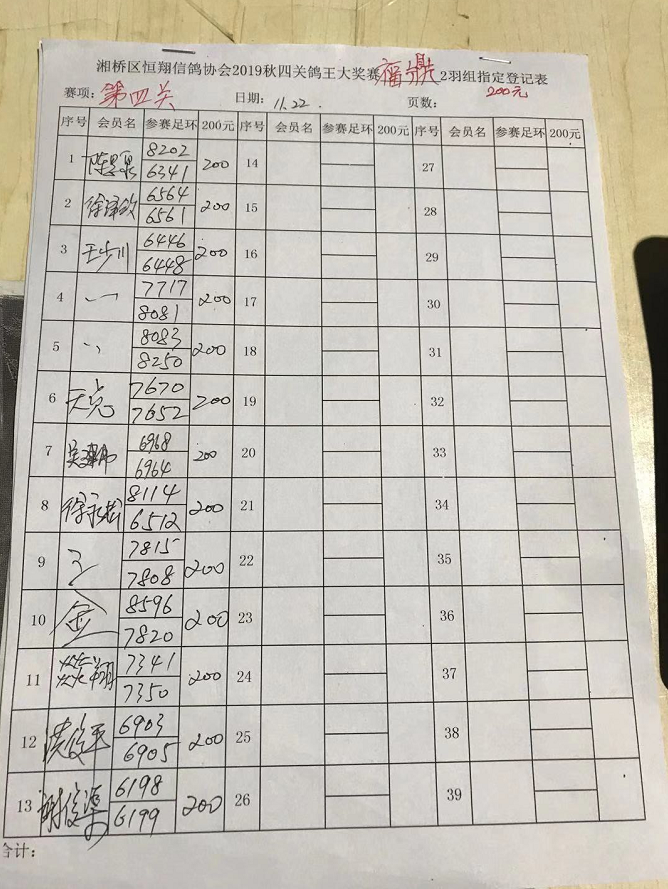 湘桥区恒翔信鸽协会2019秋四关鸽王大奖赛福鼎2羽组指定登记表
赛项：第四关 日期：11.22. 页数： 200元
序号 会员名 参赛足环 200元 序号 会员名 参赛足环 200元 序号 会员名 参赛足环 200元
1 8202 6341 200 14 27
2 6564 6561 200 15 28
3 王步川 6446 6448 200 16 29
4 7717 8081 200 17 30
5 8083 8250 200 18 31
6 天亮 7670 7652 200 19 32
7 6968 6964 200 20 33
8 8114 6512 200 21 34
9 7815 7808 200 22 35
10 金 8596 7820 200 23 36
11 7341 7350 200 24 37
12 6903 6905 200 25 38
13 6198 6199 200 26 39
合计：